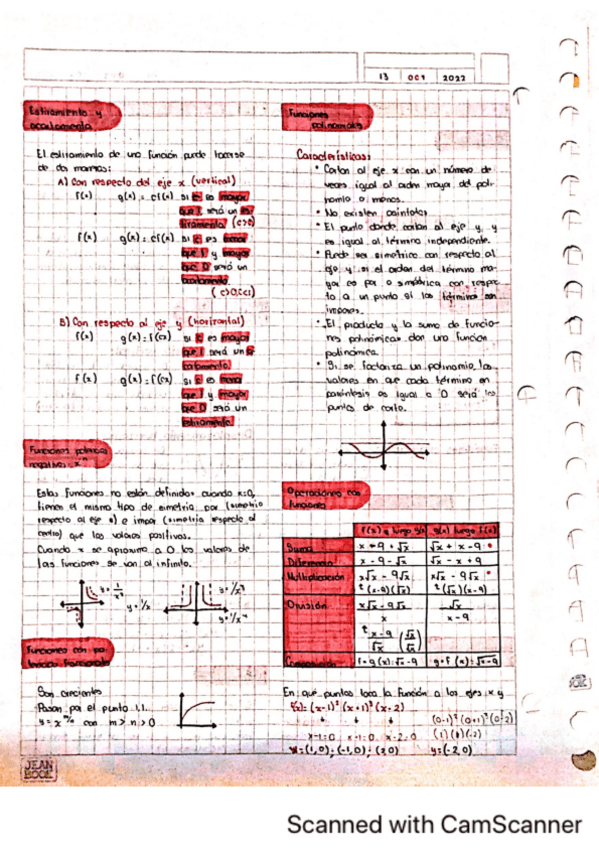 13 OCT 2022
Estiramiento y
acortamiento
El estiramiento de una función puede hacerse
de dos maneras:
A) Con respecto del eje x (vertical)
f(x) g(x) = cf(x) si c es mayor
que 1 será un es-
tiramiento (c>1)
f(x) g(x) = cf(x) si c es menor
que 1 y mayor
que 0 será un
acortamiento
(c>0, c<1)
B) Con respecto al eje y (horizontal)
f(x) g(x) = f(cx) si c es mayor
que 1 será un a-
cortamiento
f(x) g(x) = f(cx) si c es menor
que 1 y mayor
que 0 será un
estiramiento
Funciones potencias
negativas x⁻ⁿ
Estas funciones no están definidas cuando x=0,
tienen el mismo tipo de simetría par (simetría
respecto al eje y) e impar (simetría respecto al
centro) que los valores positivos.
Cuando x se aproxima a 0 los valores de
las funciones se van al infinito.
y = 1/x
Funciones con po-
tencias fraccionales
Son crecientes
Pasan por el punto 1,1.
con m > n > 0
JEAN
BOOK
Funciones
polinomiales
Características:
• Cortan al eje x con un número de
veces igual al orden mayor del poli-
nomio o menos.
• No existen asíntotas
• El punto donde cortan al eje y, y
es igual al término independiente.
• Puede ser simétrica con respecto al
eje y si el orden del término ma-
yor es par o simétrica con respec-
to a un punto si los términos son
impares.
• El producto y la suma de funcio-
nes polinómicas dan una función
polinómica.
• Si se factoriza un polinomio, los
valores en que cada término en
paréntesis es igual a 0 será los
puntos de corte.
Operaciones con
funciones
f(x) luego g(x) g(x) luego f(x)
Suma x-9+√x √x + x-9
Diferencia x-9-√x √x - x+9
Multiplicación x√x - 9√x x√x - 9√x
(x-9)(√x) (√x)(x-9)
División x√x - 9√x √x
x x-9
x-9 (√x)
√x (√x)
Composición f∘g(x): √x - 9 g∘f(x): √x-9
En qué puntos toca la función a los ejes x y
f(x) = (x-1)²(x+1)³(x-2)
x-1=0 x+1=0 x-2=0
x=(1,0); (-1,0); (2,0) y=(-2,0)
Scanned with CamScanner